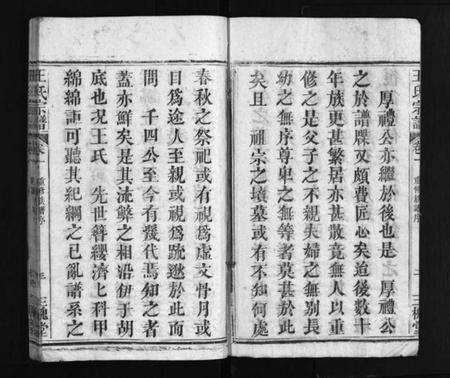 厚禮公亦繼於後也是 厚禮公
之於譜牒又頗費匠心矣迨後數十
年族更甚繁居亦甚散竟無人以重
修之是父子之不親夫婦之無別長
幼之無序尊卑之無等者莫甚於此
矣且 祖宗之墳墓或有不知何處
春秋之祭祀或有視爲虛文骨月或
目爲途人至親或視爲疏邈於此而
問 千四公至今有幾代焉知之者
蓋亦鮮矣是其流弊之相沿伊于胡
底也況王氏 先世簪纓濟七科甲
綿綿詎可聽其紀綱之已亂譜系之
王氏宗譜
卷一
重修族譜序
三
三槐堂